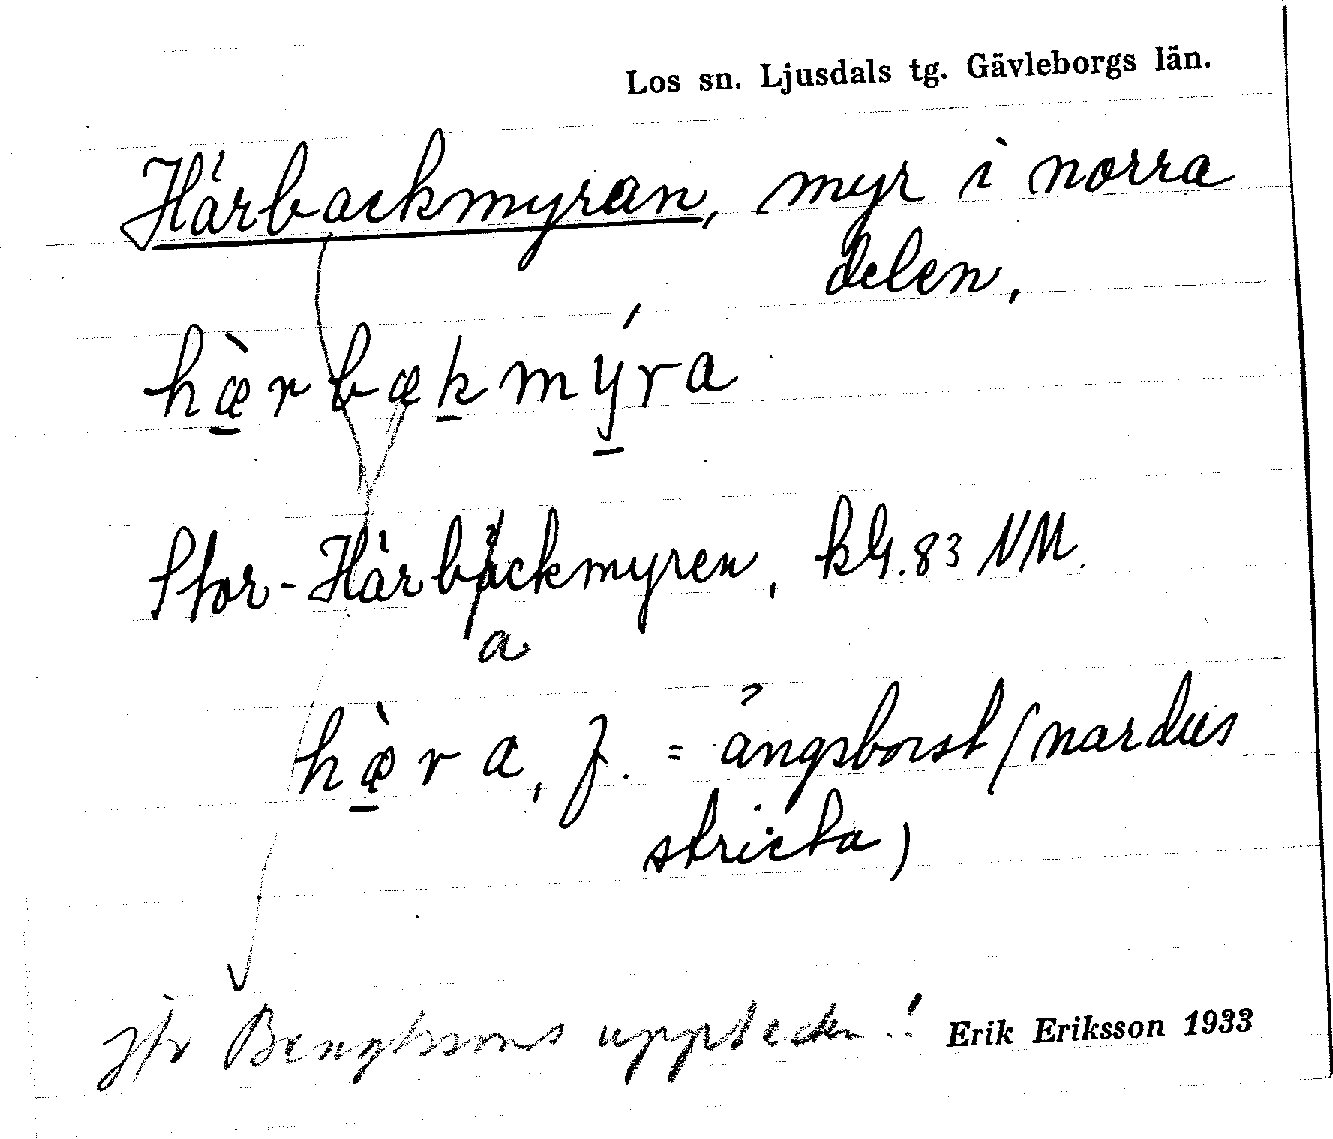 Los sn. Ljusdals tg. Gävleborgs län.
Härbackmyran, myr i norra
delen,
hæ̀rbækmýra
Stor-Härbäckmyren, kG.83 NM.
a
hæ̀ra, f. = ängsborst (nardus
stricta)
jfr Bengtsons uppteckn.!
Erik Eriksson 1933